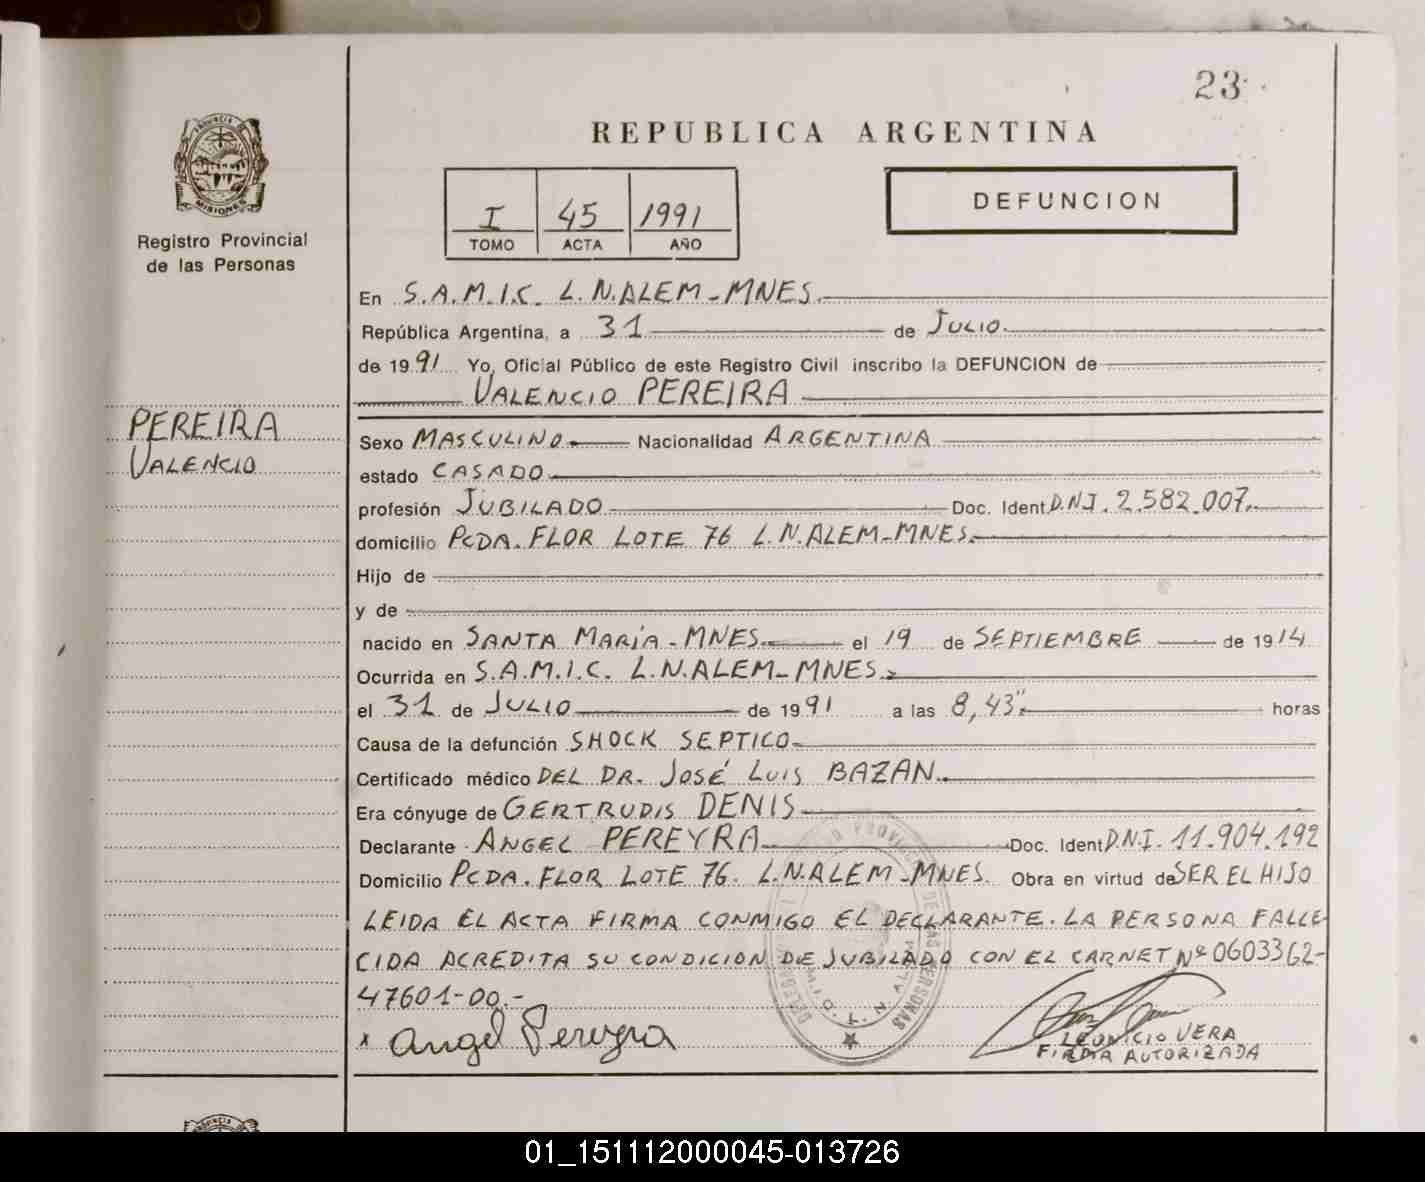 23
REPUBLICA ARGENTINA
PROVINCIA DE
MISIONES
DEFUNCION
I 45 1991
TOMO ACTA AÑO
Registro Provincial
de las Personas
En S.A.M.I.C. L.N.ALEM-MNES.
República Argentina, a 31 de JULIO.
de 1991 Yo, Oficial Público de este Registro Civil inscribo la DEFUNCION de
VALENCIO PEREIRA
PEREIRA
VALENCIO
Sexo MASCULINO. Nacionalidad ARGENTINA
estado CASADO
profesión JUBILADO Doc. Ident D.N.I. 2.582.007.
domicilio PCDA. FLOR LOTE 76 L.N.ALEM-MNES.
Hijo de
y de
nacido en SANTA MARÍA-MNES. el 19 de SEPTIEMBRE de 1914
Ocurrida en S.A.M.I.C. L.N.ALEM-MNES.
el 31 de JULIO de 1991 a las 8,43". horas
Causa de la defunción SHOCK SEPTICO-
Certificado médico DEL DR. JOSÉ LUIS BAZAN.
Era cónyuge de GERTRUDIS DENIS
Declarante ANGEL PEREYRA Doc. Ident D.N.I. 11.904.192
Domicilio PCDA. FLOR LOTE 76. L.N.ALEM-MNES. Obra en virtud de SER EL HIJO
LEIDA EL ACTA FIRMA CONMIGO EL DECLARANTE. LA PERSONA FALLE
CIDA ACREDITA SU CONDICION DE JUBILADO CON EL CARNET Nº 0603362-
47601-00.-
x Angel Pereyra
LEONICIO VERA
FIRMA AUTORIZADA
DE LAS PERSONAS
L. N. ALEM
PROVINCIA DE
01_151112000045-013726